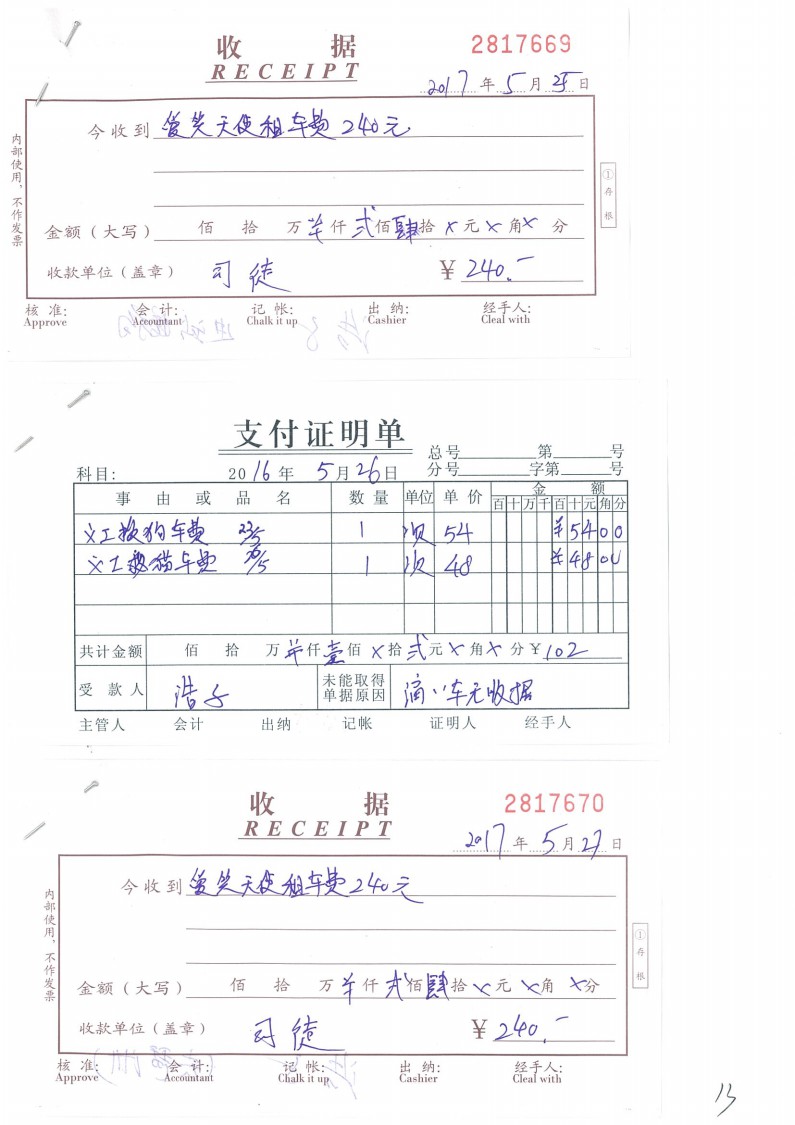 收 据 2817669
RECEIPT
2017 年 5 月 25 日
今收到 爱笑天使租车费 240元
金额（大写） 佰 拾 万 羊 仟 弍 佰 肆 拾 × 元 × 角 × 分
收款单位（盖章） 司徒 ¥ 240.-
核 准: 会 计: 记 帐: 出 纳: 经手人:
Approve Accountant Chalk it up Cashier Cleal with
内部使用，不作发票
① 存根
支付证明单
总号 第 号
科目: 2016 年 5 月 26 日 分号 字第 号
事 由 或 品 名 数 量 单位 单 价 金 额
百 十 万 千 百 十 元 角 分
义工接狗车费 23/5 1 次 54 ¥ 5 4 0 0
义工救猫车费 1 次 48 ¥ 4 8 0 0
共计金额 佰 拾 万 羊 仟 壹 佰 × 拾 弍 元 × 角 × 分 ¥ 102
受 款 人 浩子 未能取得单据原因 滴滴车无收据
主管人 会计 出纳 记帐 证明人 经手人
收 据 2817670
RECEIPT
2017 年 5 月 27 日
今收到 爱笑天使租车费 240元
金额（大写） 佰 拾 万 羊 仟 弍 佰 肆 拾 × 元 × 角 × 分
收款单位（盖章） 司徒 ¥ 240.-
核 准: 会 计: 记 帐: 出 纳: 经手人:
Approve Accountant Chalk it up Cashier Cleal with
内部使用，不作发票
① 存根
13